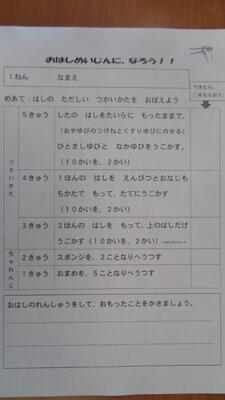 おはしめいじんに、なろう！！
1ねん　なまえ
できたら、
○をもらおう
めあて：はしの　ただしい　つかいかたを　おぼえよう
つかいかた
5きゅう
したの　はしをたいらに　もったままで、
(おやゆびのつけねとくすりゆびにのせる)
ひとさしゆびと　なかゆびをうごかす。
(10かいを、2かい)
4きゅう
1ぽんの　はしを　えんぴつとおなじも
ちかたで　もって、たてにうごかす
(10かいを、2かい)
3きゅう
2ほんの　はしを　もって、上のはしだけ
うごかす(10かいを、2かい)
ちゃれんじ
2きゅう
スポンジを、2ことなりへうつす
1きゅう
おまめを、5ことなりへうつす
おはしのれんしゅうをして、おもったことをかきましょう。